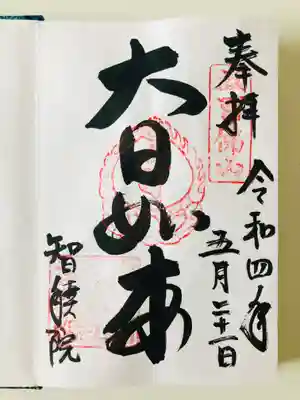 奉拝
令和四年
五月二十一日
大日如来
智積院